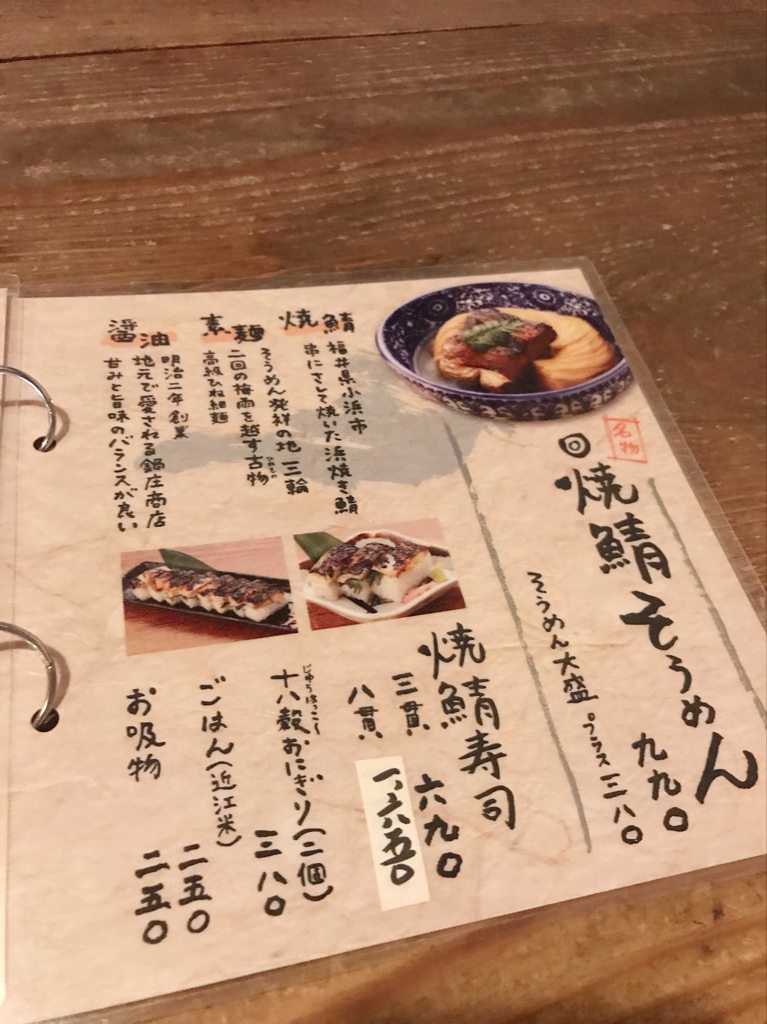 名物
焼鯖そうめん
九九〇
そうめん大盛 プラス三八〇
焼鯖
福井県小浜市
串にさして焼いた浜焼き鯖
素麺
そうめん発祥の地 三輪
二回の梅雨を越す古物
ひねもの
高級ひね細麺
醤油
明治二年創業
地元で愛される鍋庄商店
甘みと旨味のバランスが良い
焼鯖寿司
三貫 六九〇
八貫 一、六五〇
十八穀おにぎり(二個) 三八〇
ごはん(近江米) 二五〇
お吸物 二五〇